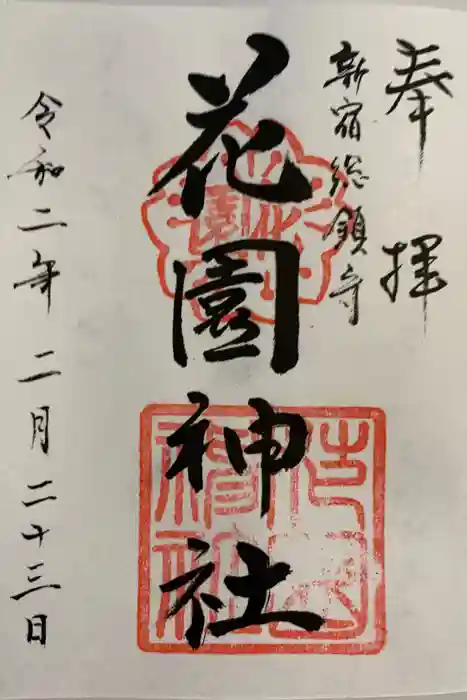 奉拝
新宿総鎮守
花園神社
令和二年 二月二十三日